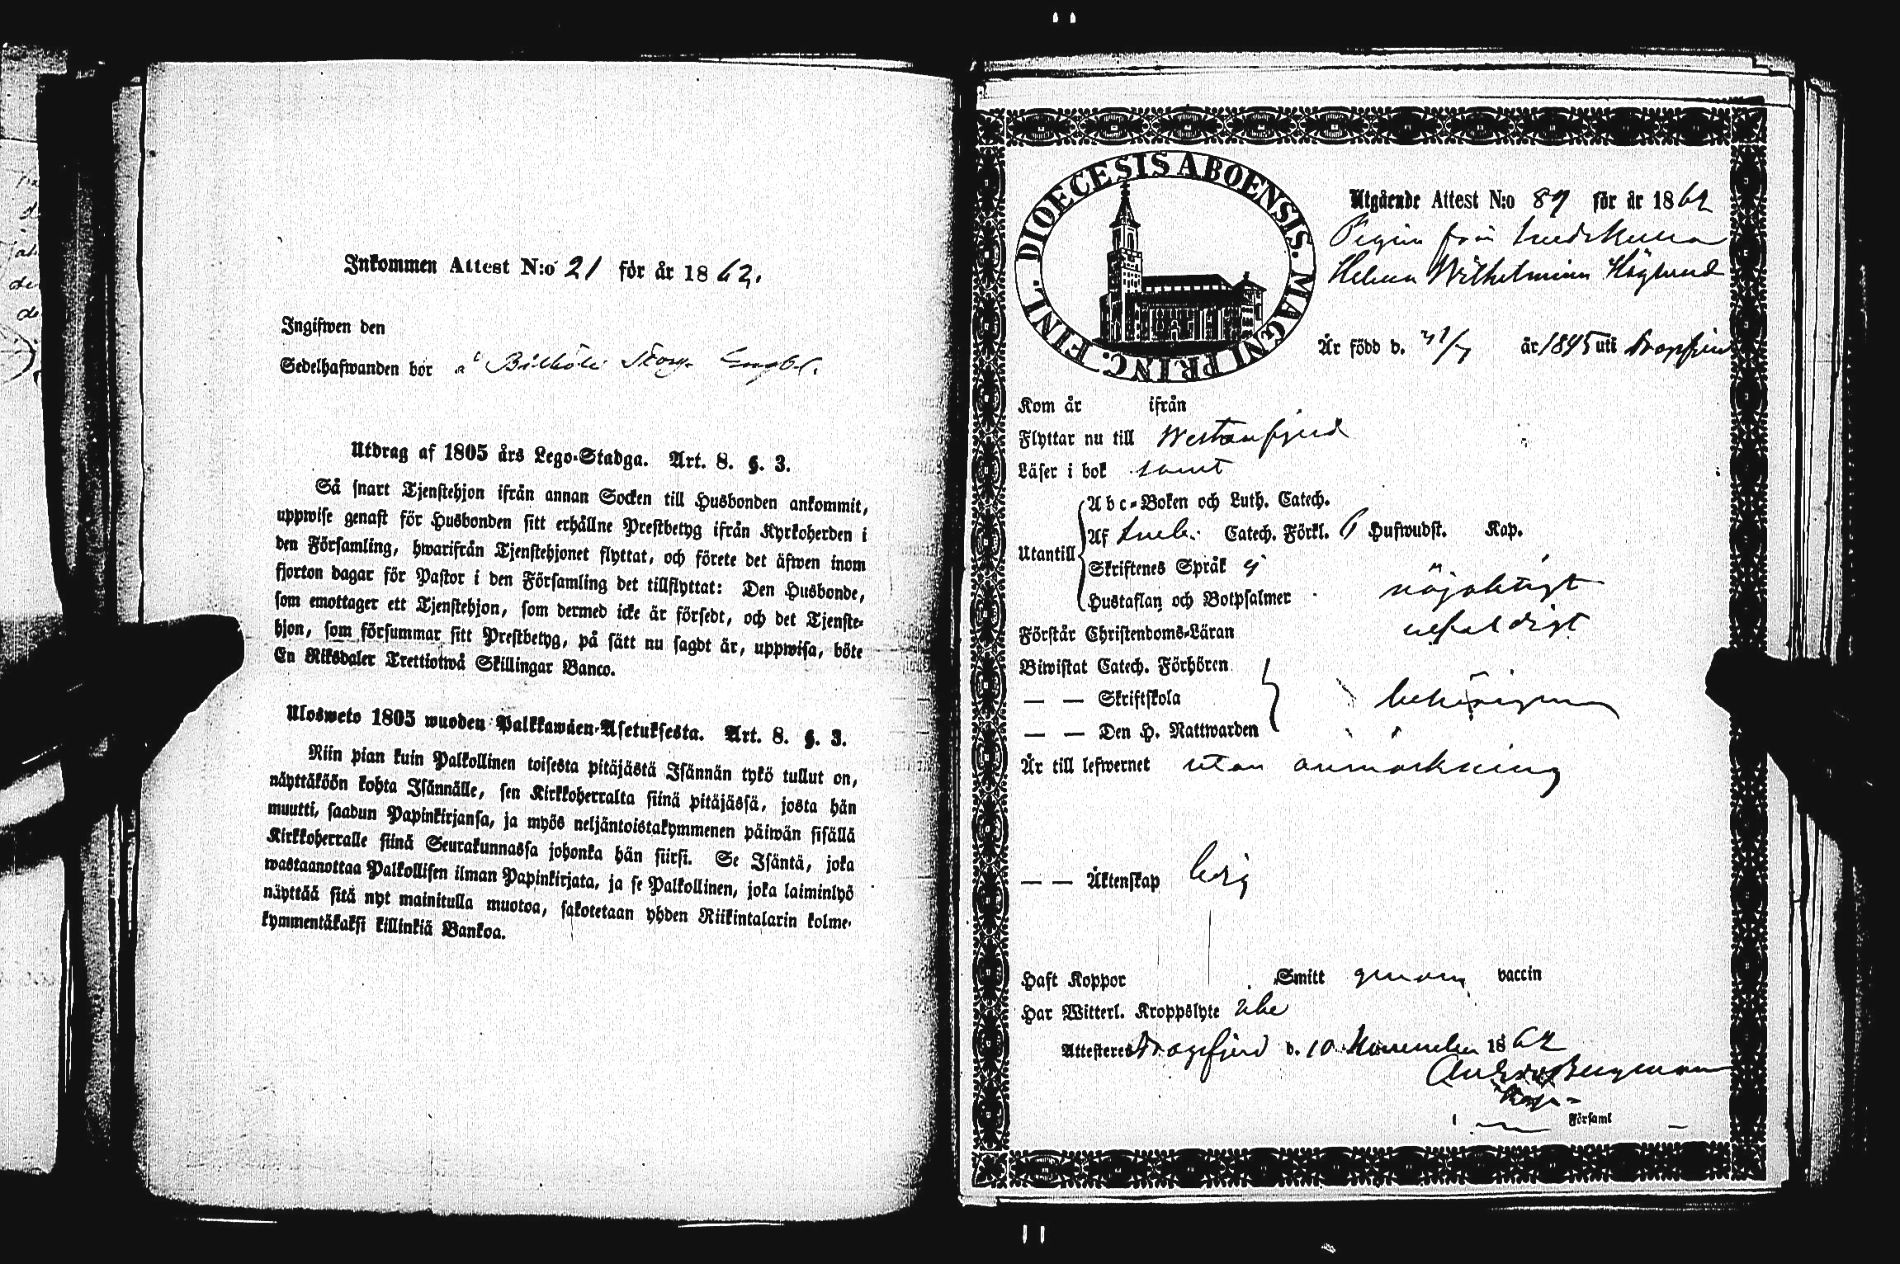 Inkommen Attest N:o 21 för år 1862.
Ingifwen den
Sedelhafwanden bor å
Utdrag af 1805 års Lego-Stadga. Art. 8. §. 3.
Så snart Tjenstehjon ifrån annan Socken till Husbonden ankommit,
uppwise genast för Husbonden sitt erhållne Prestbetyg ifrån Kyrkoherden i
den Församling, hwarifrån Tjenstehjonet flyttat, och förete det äfwen inom
fjorton dagar för Pastor i den Församling det tillflyttat: Den Husbonde,
som emottager ett Tjenstehjon, som dermed icke är försedt, och det Tjenste-
hjon, som försummar sitt Prestbetyg, på sätt nu sagdt är, uppwisa, böte
En Riksdaler Trettiotwå Skillingar Banco.
Ulosweto 1805 wuoden Palkkawäen-Asetuksesta. Art. 8. §. 3.
Niin pian kuin Palkollinen toisesta pitäjästä Isännän tykö tullut on,
näyttäköön kohta Isännälle, sen Kirkkoherralta siinä pitäjässä, josta hän
muutti, saadun Papinkirjansa, ja myös neljäntoistakymmenen päiwän sisällä
Kirkkoherralle siinä Seurakunnassa johonka hän siirsi. Se Isäntä, joka
wastaanottaa Palkollisen ilman Papinkirjata, ja se Palkollinen, joka laiminlyö
näyttää sitä nyt mainitulla muotoa, sakotetaan yhden Riikintalarin kolme-
kymmentäkaksi killinkiä Bankoa.
DIOECESIS ABOENSIS. MAGNI PRINC. FINL.
Utgående Attest N:o 89 för år 1862
Pigan från
Helena Wilhelmina Höglund
Är född d. år 1845 uti Dragsfjerd
Kom år ifrån
Flyttar nu till Westanfjerd
Läser i bok samt
Utantill
Abc-Boken och Luth. Catech.
Af Cateh. Förkl. 6 Hufwudst. Kap.
Skriftenes Språk
Hustaflan och Botpsalmer nöjaktigt
Förstår Christendoms-Läran
Biwistat Catech. Förhören
— — Skriftskola behörigen
— — Den H. Nattwarden
Är till lefwernet utan anmärkning
— — Äktenskap ledig
Haft Koppor Smitt genom vaccin
Har Witterl. Kroppslyte icke
Attesteras Dragsfjerd d. 10 November 1862
Bergman
Församl